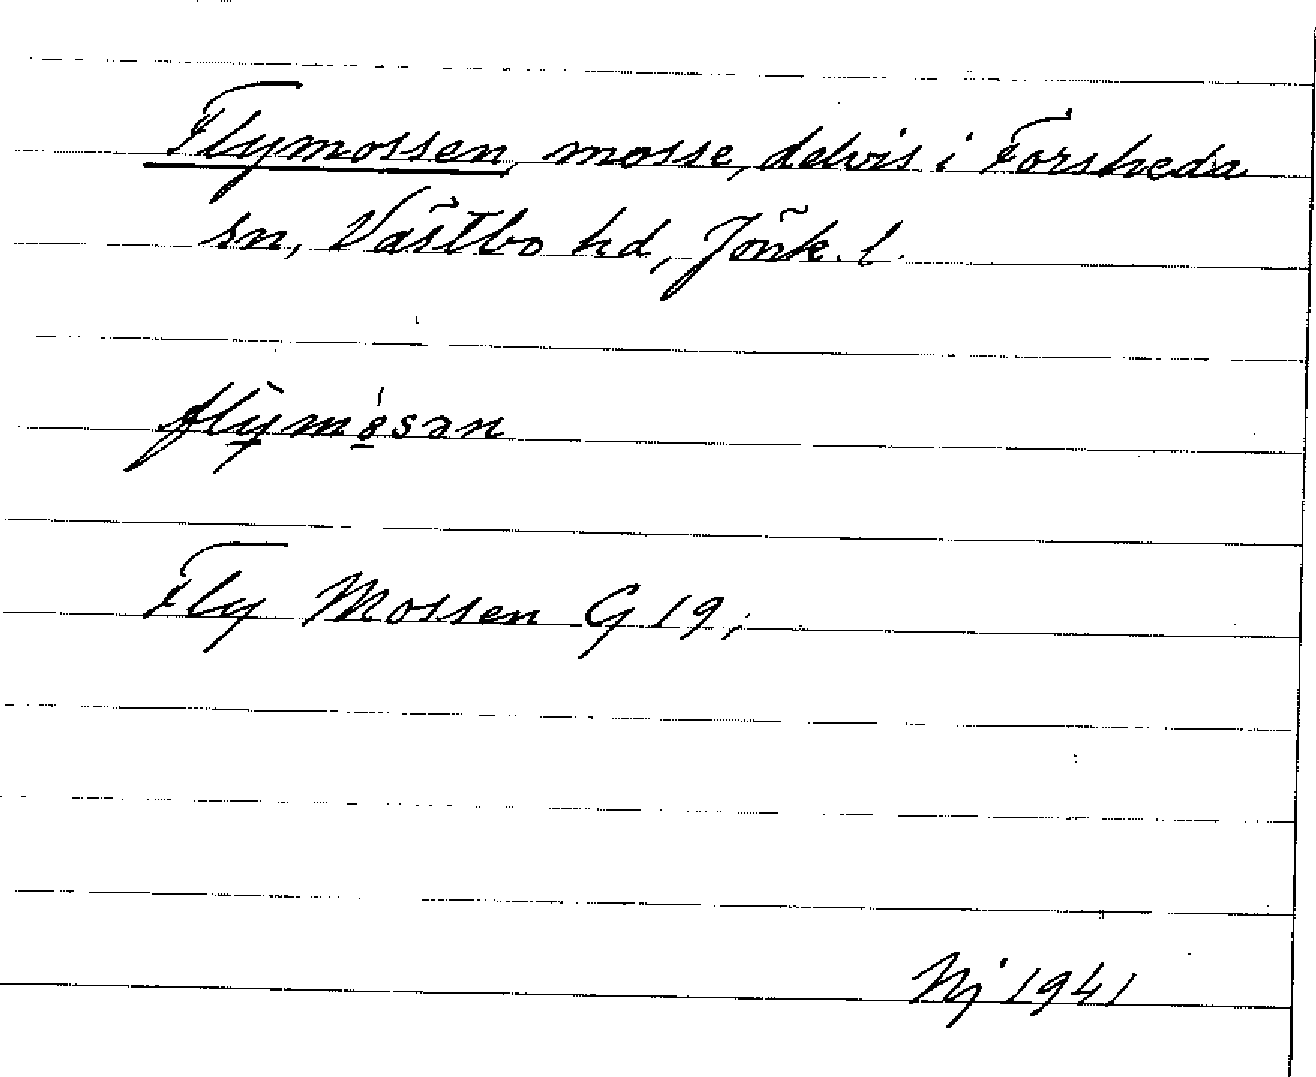 Flymossen, mosse, delvis i Forsheda
sn, Västbo hd, Jönk. l.
flỳmǿsən
Fly Mossen G 19;
Nj 1941